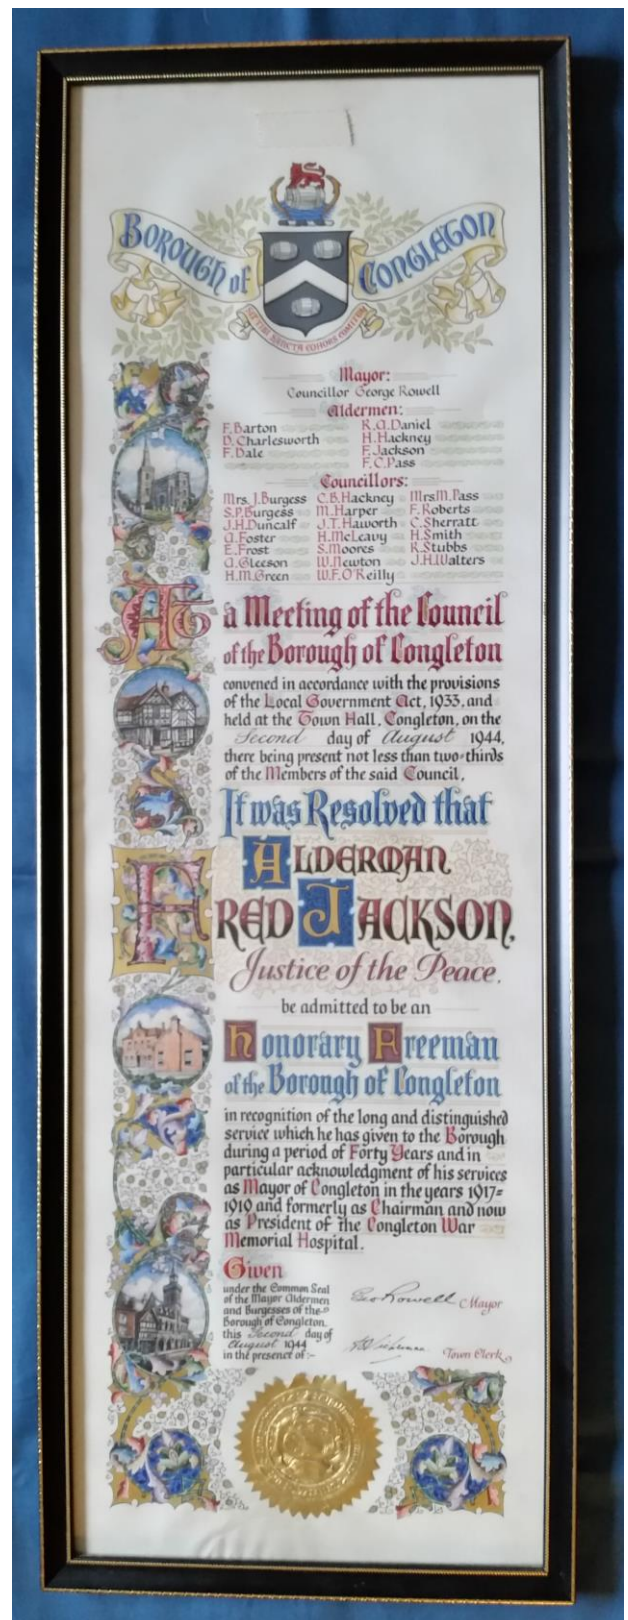 BOROUGH of CONGLETON
SANCTA COHORS COMITUM
Mayor:
Councillor George Rowell
Aldermen:
F. Barton R. A. Daniel
D. Charlesworth H. Hackney
F. Dale F. Jackson
F. C. Pass
Councillors:
Mrs. J. Burgess C. B. Hackney Mrs M. Pass
S. P. Burgess M. Harper F. Roberts
J. H. Duncalf J. T. Haworth C. Sherratt
A. Foster H. McLeavy H. Smith
E. Frost S. Moores R. Stubbs
A. Gleeson W. Newton J. H. Walters
H. M. Green W. F. O'Reilly
At a Meeting of the Council
of the Borough of Congleton
convened in accordance with the provisions
of the Local Government Act, 1933, and
held at the Town Hall, Congleton, on the
Second day of August 1944,
there being present not less than two-thirds
of the Members of the said Council,
It was Resolved that
ALDERMAN
FRED JACKSON,
Justice of the Peace,
be admitted to be an
Honorary Freeman
of the Borough of Congleton
in recognition of the long and distinguished
service which he has given to the Borough
during a period of Forty Years and in
particular acknowledgment of his services
as Mayor of Congleton in the years 1917=
1919 and formerly as Chairman and now
as President of the Congleton War
Memorial Hospital.
Given
under the Common Seal
of the Mayor Aldermen
and Burgesses of the
Borough of Congleton,
this Second day of
August 1944
in the presence of :-
Geo Rowell Mayor
Town Clerk